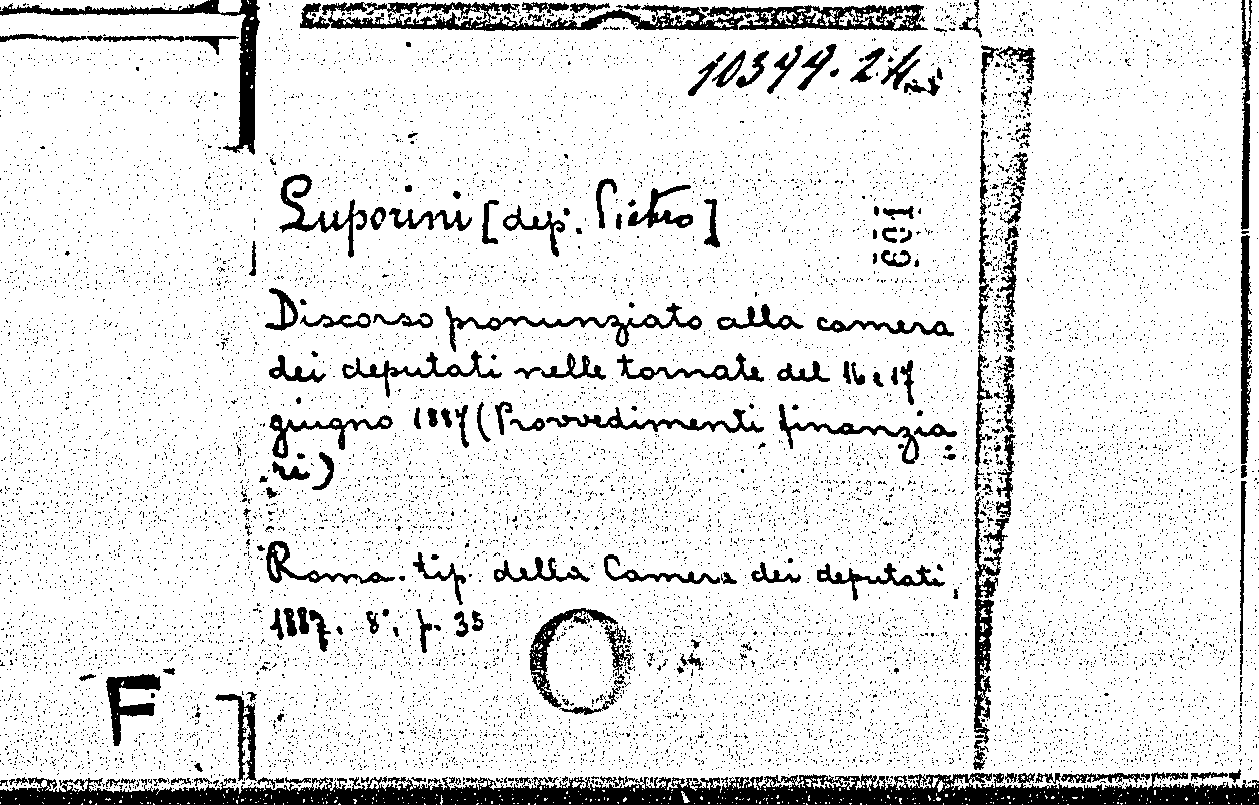 Luporini [dep. Pietro]
601
Discorso pronunziato alla camera
dei deputati nelle tornate del 16 e 17
giugno 1887 (Provvedimenti finanzia
ri)
Roma. tip. della Camera dei deputati,
1887. 8°, p. 35
F